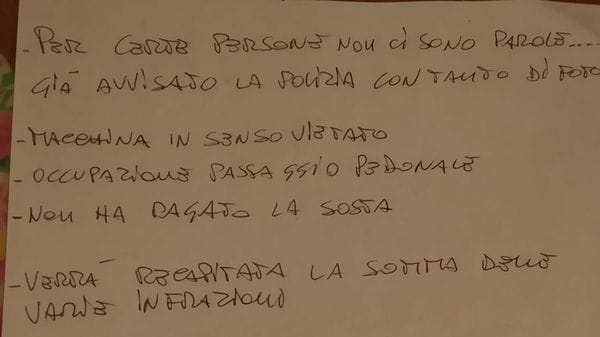 - PER CERTE PERSONE NON CI SONO PAROLE....
GIÀ AVVISATO LA POLIZIA CON TANTO DI FOTO
- MACCHINA IN SENSO VIETATO
- OCCUPAZIONE PASSAGGIO PEDONALE
- NON HA PAGATO LA SOSTA
- VERRÀ RECAPITATA LA SOMMA DELLE
VARIE INFRAZIONI